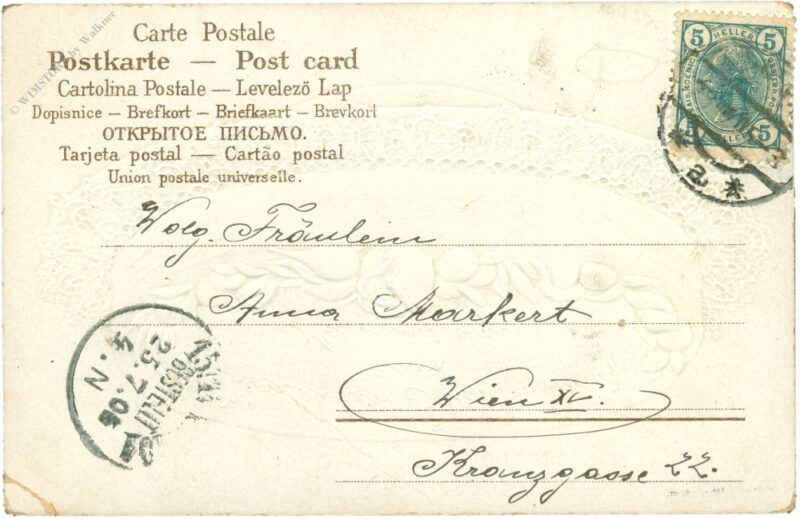 Carte Postale
Postkarte — Post card
Cartolina Postale — Levelező Lap
Dopisnice — Brefkort — Briefkaart — Brevkort
ОТКРЫТОЕ ПИСЬМО.
Tarjeta postal — Cartão postal
Union postale universelle.
© WIMSTORE by Walkner
5 HELLER 5
5 HELLER 5
Wolg. Fräulein
Anna Markert
Wien XV.
Kranzgasse 22.
BESTELLT
25.7.06
4.N